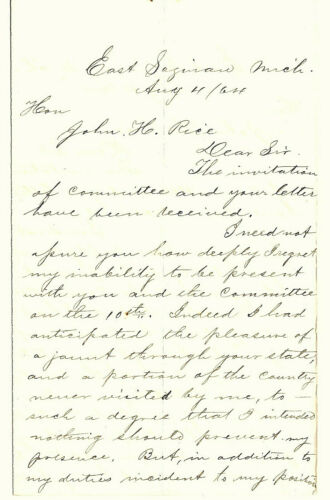 East Saginaw Mich.
Aug 4/64
Hon
John. H. Rice
Dear Sir.
The invitation
of Committee and your letter
have been received.
I need not
assure you how deeply I regret
my inability to be present
with you and the Committee
on the 10th. Indeed I had
anticipated the pleasure of
a jaunt through your state,
and a portion of the Country
never visited by me, to —
such a degree that I intended
nothing should prevent my
presence. But, in addition to
my duties incident to my position